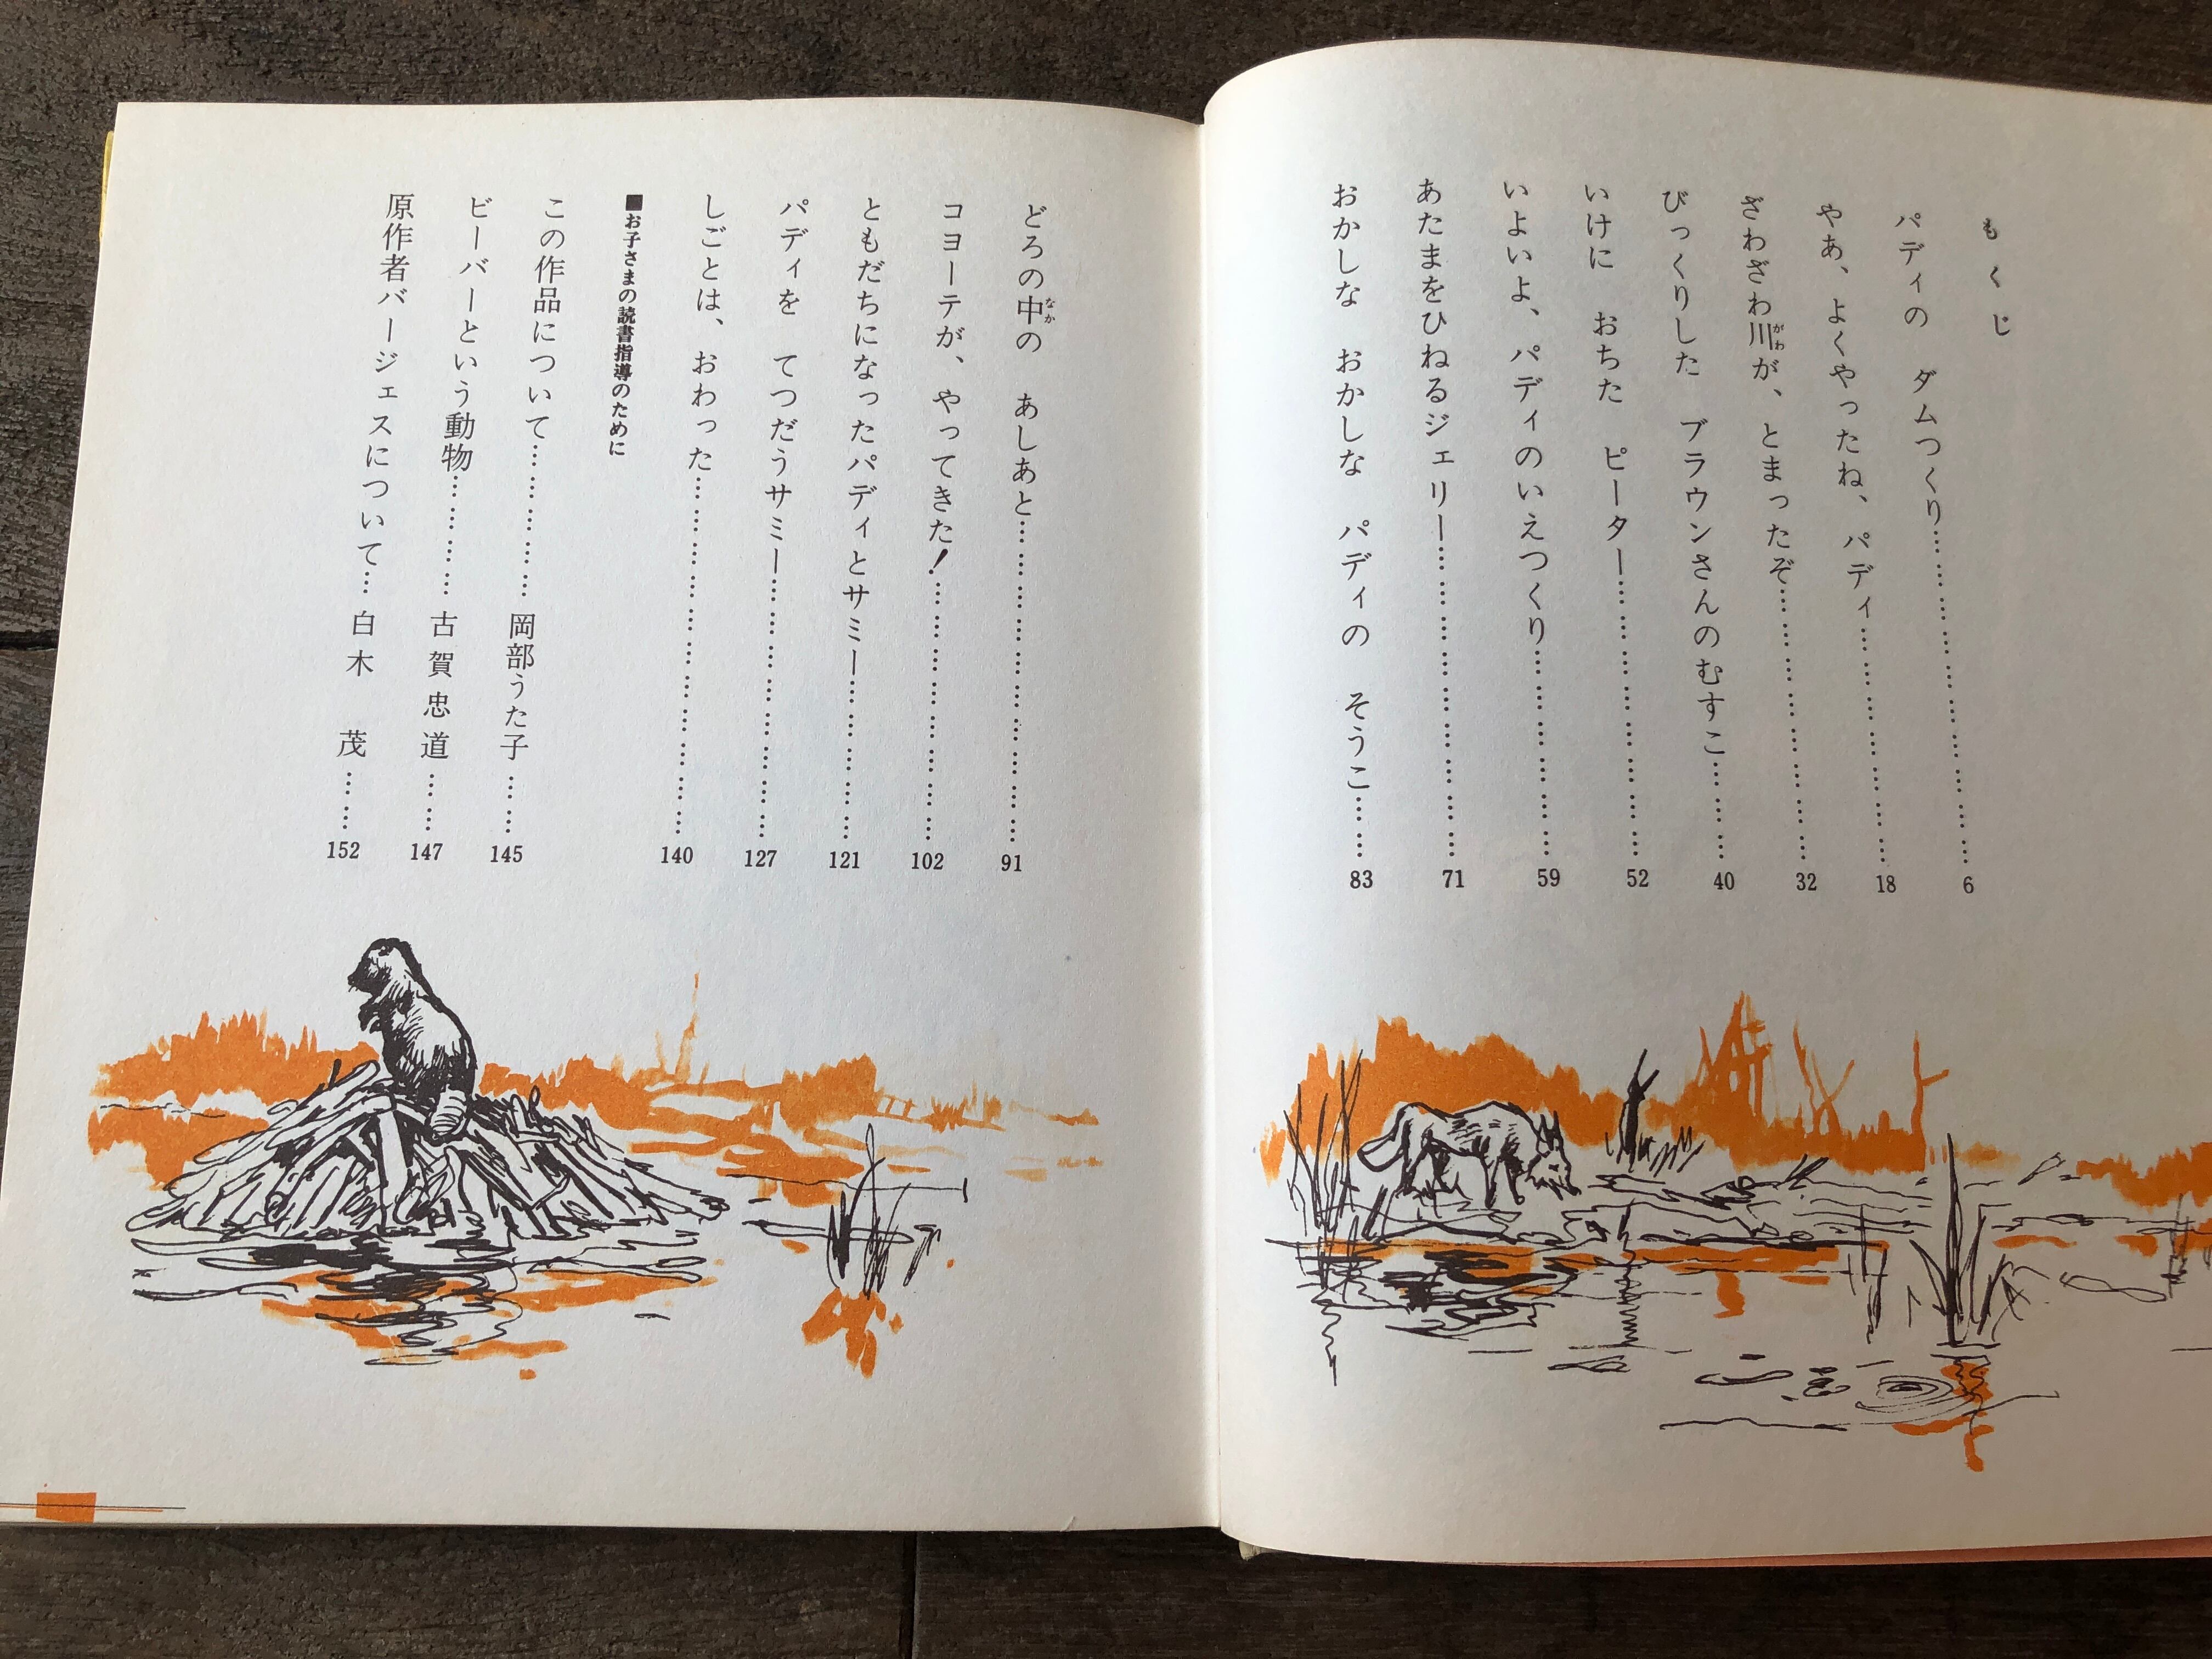 もくじ
パディの　ダムつくり……………………6
やあ、よくやったね、パディ……………………18
ざわざわ川が、とまったぞ……………………32
びっくりした　ブラウンさんのむすこ………40
いけに　おちた　ピーター……………………52
いよいよ、パディのいえつくり……………………59
あたまをひねるジェリー……………………71
おかしな　おかしな　パディの　そうこ……83
どろの中の　あしあと……………………91
コヨーテが、やってきた！……………………102
ともだちになったパディとサミー……………121
パディを　てつだうサミー……………………127
しごとは、おわった……………………140
■お子さまの読書指導のために
この作品について……………岡部うた子……145
ビーバーという動物…………古賀忠道……147
原作者バージェスについて…白木　茂……152